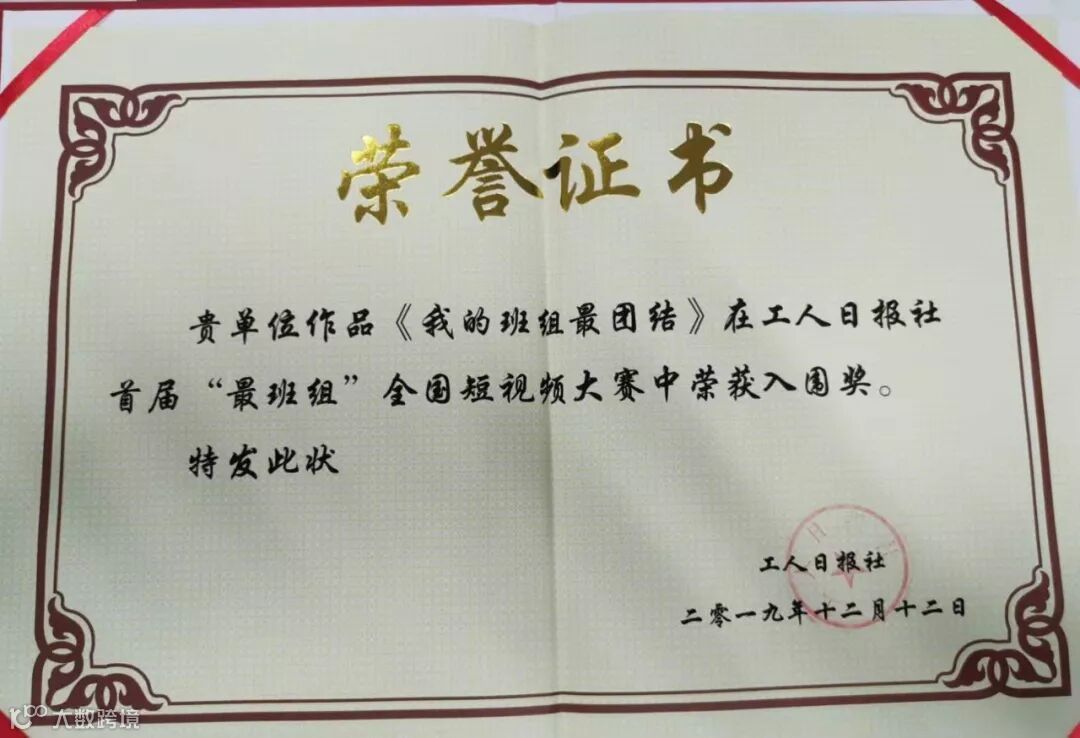 荣誉证书
贵单位作品《我的班组最团结》在工人日报社
首届“最班组”全国短视频大赛中荣获入围奖。
特发此状
工人日报社
二零一九年十二月十二日
大数跨境